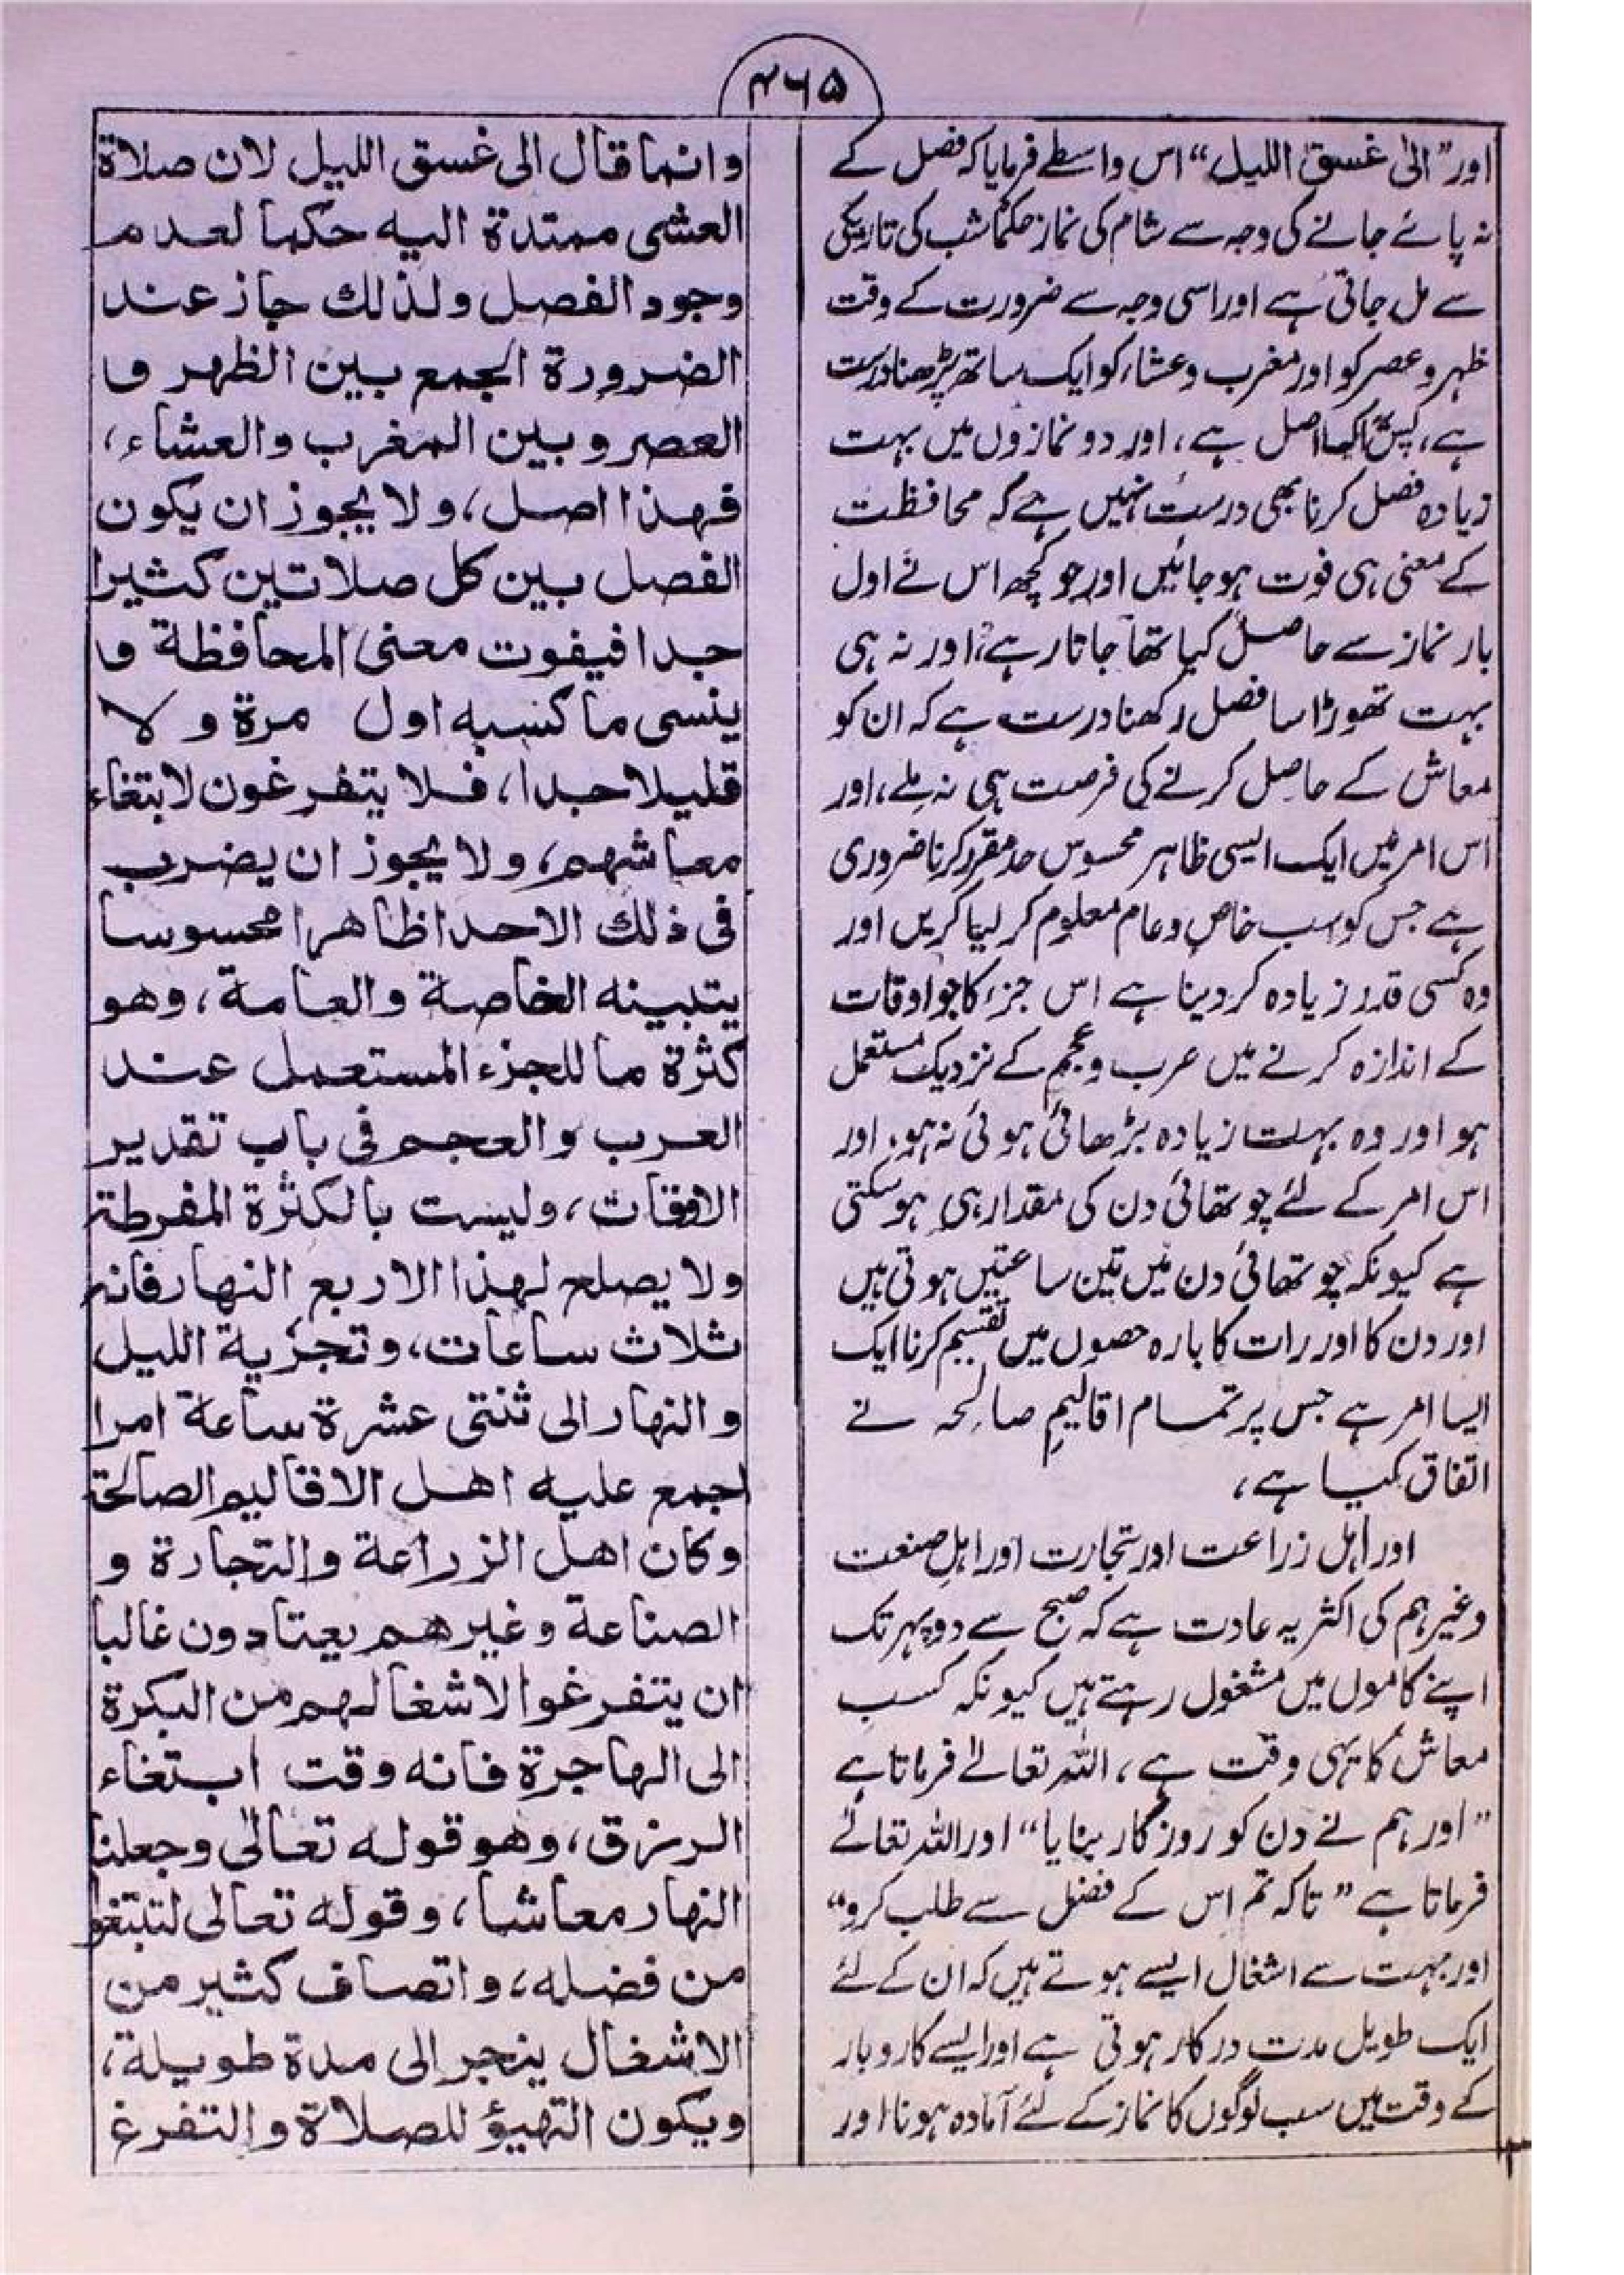 ۴۶۵
اور "الیٰ غسق اللیل" اس واسطے فرمایا کہ فصل کے
نہ پائے جانے کی وجہ سے شام کی نماز حکماً شب کی تاریکی
سے مل جاتی ہے اور اسی وجہ سے ضرورت کے وقت
ظہر و عصر کو اور مغرب و عشاء کو ایک ساتھ پڑھنا درست
ہے، پس یہ ایک اصل ہے، اور دو نمازوں میں بہت
زیادہ فصل کرنا بھی درست نہیں ہے کہ محافظت
کے معنی ہی فوت ہو جائیں اور جو کچھ اس نے اول
بار نماز سے حاصل کیا تھا جاتا رہے، اور نہ ہی
بہت تھوڑا سا فصل رکھنا درست ہے کہ ان کو
معاش کے حاصل کرنے کی فرصت ہی نہ ملے، اور
اس امر میں ایک ایسی ظاہر محسوس حد مقرر کرنا ضروری
ہے جس کو سب خاص و عام معلوم کر لیا کریں اور
وہ کسی قدر زیادہ کر دینا ہے اس جزء کا جو اوقات
کے اندازہ کرنے میں عرب و عجم کے نزدیک مستعمل
ہو اور وہ بہت زیادہ بڑھائی ہوئی نہ ہو، اور
اس امر کے لئے چوتھائی دن کی مقدار ہی ہو سکتی
ہے کیونکہ چوتھائی دن میں تین ساعتیں ہوتی ہیں
اور دن کا اور رات کا بارہ حصوں میں تقسیم کرنا ایک
ایسا امر ہے جس پر تمام اقالیم صالحہ نے
اتفاق کیا ہے،
اور اہل زراعت اور تجارت اور اہل صنعت
وغیرہم کی اکثر یہ عادت ہے کہ صبح سے دوپہر تک
اپنے کاموں میں مشغول رہتے ہیں کیونکہ کسب
معاش کا یہی وقت ہے، اللہ تعالےٰ فرماتا ہے
"اور ہم نے دن کو روزگار بنایا" اور اللہ تعالےٰ
فرماتا ہے "تاکہ تم اس کے فضل سے طلب کرو"
اور بہت سے اشغال ایسے ہوتے ہیں کہ ان کے لئے
ایک طویل مدت درکار ہوتی ہے اور ایسے کاروبار
کے وقت میں سب لوگوں کا نماز کے لئے آمادہ ہونا اور
وانما قال الی غسق اللیل لان صلاة
العشی ممتدة الیه حکما لعدم
وجود الفصل ولذلك جاز عند
الضرورة الجمع بین الظهر و
العصر و بین المغرب والعشاء،
فهذا اصل، ولا یجوز ان یکون
الفصل بین کل صلاتین کثیرا
جدا فیفوت معنی المحافظة و
ینسی ما کسبه اول مرة و لا
قلیلا جدا، فلا یتفرغون لابتغاء
معاشهم، ولا یجوز ان یضرب
فی ذلك الا حدا ظاهرا محسوسا
یتبینه الخاصة والعامة، وهو
کثرة ما للجزء المستعمل عند
العرب والعجم فی باب تقدیر
الاوقات، ولیست بالکثرة المفرطة
ولا یصلح لهذا الا ربع النهار فانه
ثلاث ساعات، وتجزیة اللیل
والنهار الی ثنتی عشرة ساعة امرا
اجمع علیه اهل الاقالیم الصالحة
وکان اهل الزراعة والتجارة و
الصناعة وغیرهم یعتادون غالبا
ان یتفرغوا لاشغالهم من البکرة
الی الهاجرة فانه وقت ابتغاء
الرزق، وهو قوله تعالیٰ وجعلنا
النهار معاشا، وقوله تعالی لتبتغوا
من فضله، واتصاف کثیر من
الاشغال ینجر الی مدة طویلة،
ویکون التهیؤ للصلاة والتفرغ